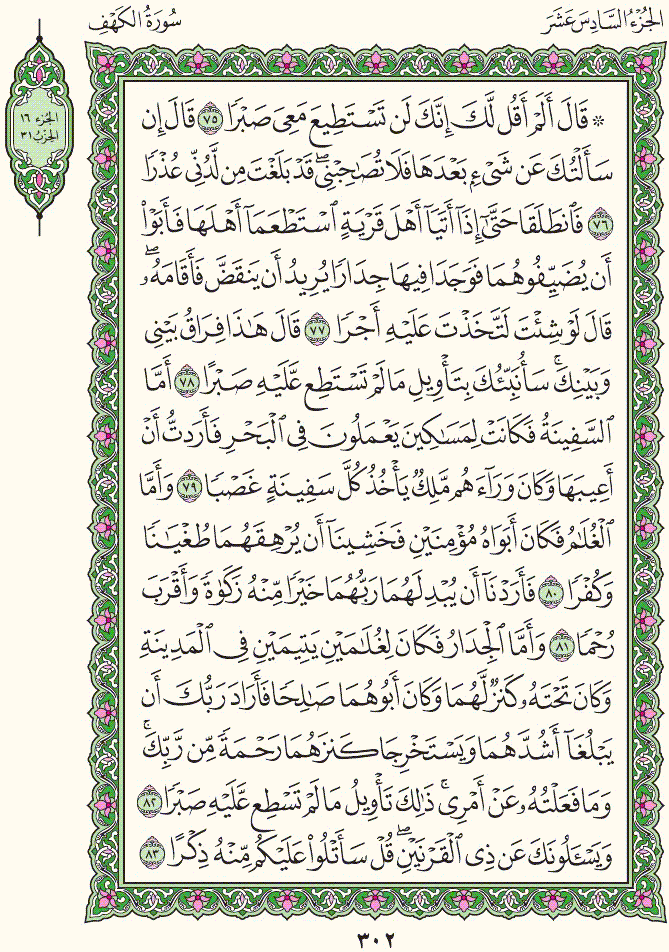 الجُزْءُ السَّادِسَ عَشَرَ
سُورَةُ الكَهْفِ
الجزء ١٦
الحزب ٣١
۞ قَالَ أَلَمۡ أَقُل لَّكَ إِنَّكَ لَن تَسۡتَطِيعَ مَعِيَ صَبۡرٗا ٧٥ قَالَ إِن
سَأَلۡتُكَ عَن شَيۡءِۭ بَعۡدَهَا فَلَا تُصَٰحِبۡنِيۖ قَدۡ بَلَغۡتَ مِن لَّدُنِّي عُذۡرٗا
٧٦ فَٱنطَلَقَا حَتَّىٰٓ إِذَآ أَتَيَآ أَهۡلَ قَرۡيَةٍ ٱسۡتَطۡعَمَآ أَهۡلَهَا فَأَبَوۡاْ
أَن يُضَيِّفُوهُمَا فَوَجَدَا فِيهَا جِدَارٗا يُرِيدُ أَن يَنقَضَّ فَأَقَامَهُۥۖ
قَالَ لَوۡ شِئۡتَ لَتَّخَذۡتَ عَلَيۡهِ أَجۡرٗا ٧٧ قَالَ هَٰذَا فِرَاقُ بَيۡنِي
وَبَيۡنِكَۚ سَأُنَبِّئُكَ بِتَأۡوِيلِ مَا لَمۡ تَسۡتَطِع عَّلَيۡهِ صَبۡرًا ٧٨ أَمَّا
ٱلسَّفِينَةُ فَكَانَتۡ لِمَسَٰكِينَ يَعۡمَلُونَ فِي ٱلۡبَحۡرِ فَأَرَدتُّ أَنۡ
أَعِيبَهَا وَكَانَ وَرَآءَهُم مَّلِكٞ يَأۡخُذُ كُلَّ سَفِينَةٍ غَصۡبٗا ٧٩ وَأَمَّا
ٱلۡغُلَٰمُ فَكَانَ أَبَوَاهُ مُؤۡمِنَيۡنِ فَخَشِينَآ أَن يُرۡهِقَهُمَا طُغۡيَٰنٗا
وَكُفۡرٗا ٨٠ فَأَرَدۡنَآ أَن يُبۡدِلَهُمَا رَبُّهُمَا خَيۡرٗا مِّنۡهُ زَكَوٰةٗ وَأَقۡرَبَ
رُحۡمٗا ٨١ وَأَمَّا ٱلۡجِدَارُ فَكَانَ لِغُلَٰمَيۡنِ يَتِيمَيۡنِ فِي ٱلۡمَدِينَةِ
وَكَانَ تَحۡتَهُۥ كَنزٞ لَّهُمَا وَكَانَ أَبُوهُمَا صَٰلِحٗا فَأَرَادَ رَبُّكَ أَن
يَبۡلُغَآ أَشُدَّهُمَا وَيَسۡتَخۡرِجَا كَنزَهُمَا رَحۡمَةٗ مِّن رَّبِّكَۚ
وَمَا فَعَلۡتُهُۥ عَنۡ أَمۡرِيۚ ذَٰلِكَ تَأۡوِيلُ مَا لَمۡ تَسۡطِع عَّلَيۡهِ صَبۡرٗا ٨٢
وَيَسۡـَٔلُونَكَ عَن ذِي ٱلۡقَرۡنَيۡنِۖ قُلۡ سَأَتۡلُواْ عَلَيۡكُم مِّنۡهُ ذِكۡرًا ٨٣
٣٠٢